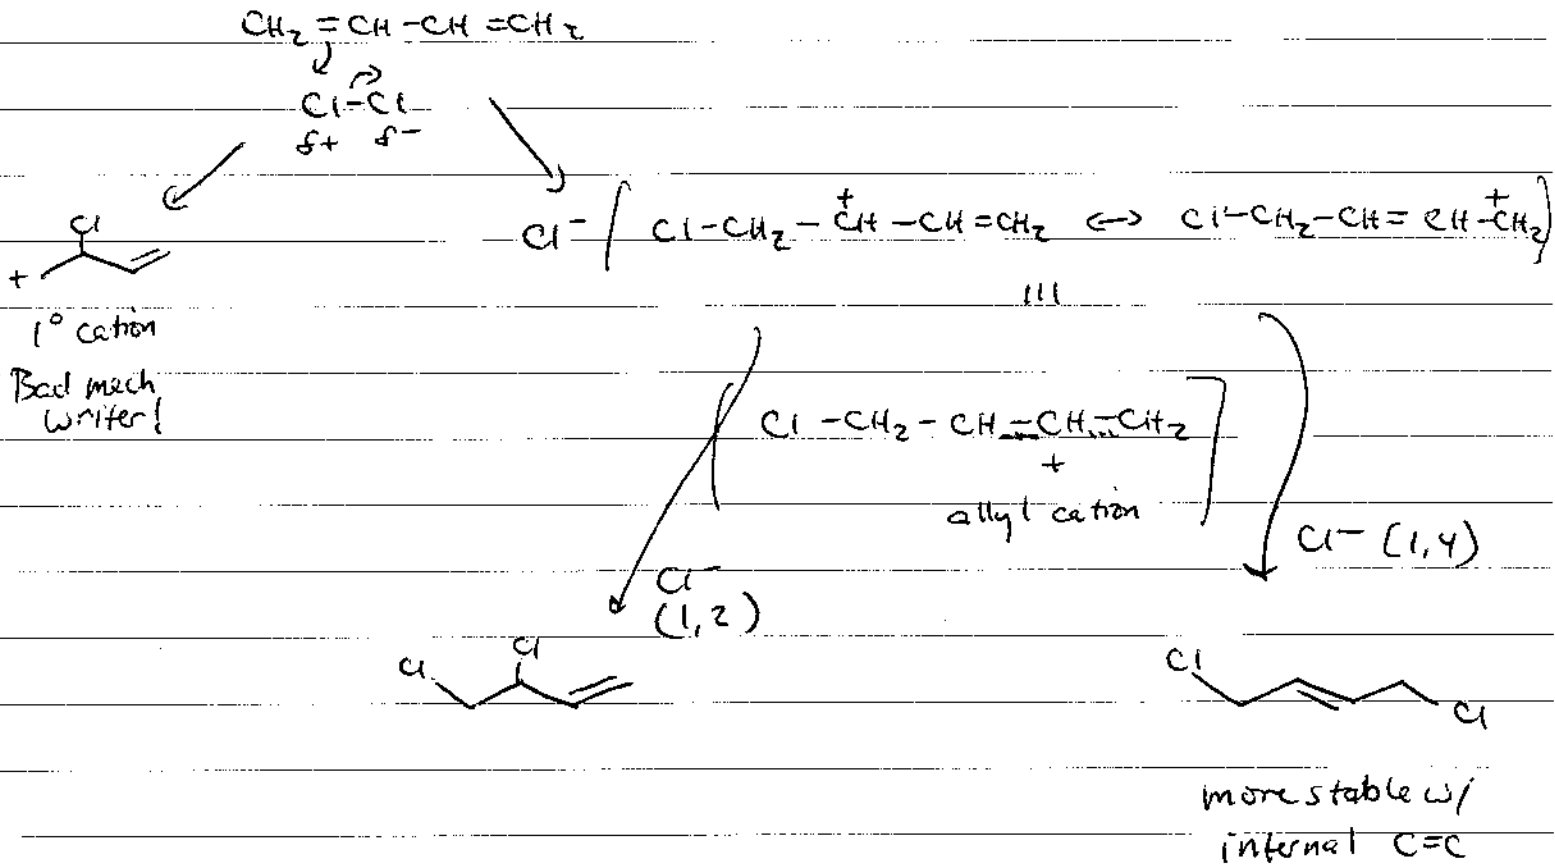 CH₂=CH-CH=CH₂
Cl-Cl
δ+ δ-
Cl
+
1° cation
Bad mech
writer!
Cl⁻ ( Cl-CH₂-C⁺H-CH=CH₂ ↔ Cl-CH₂-CH=CH-C⁺H₂ )
III
[ Cl-CH₂-CH=CH=CH₂ ]
+
allyl cation
Cl⁻
(1,2)
Cl⁻ (1,4)
Cl
Cl
Cl
Cl
more stable w/
internal C=C